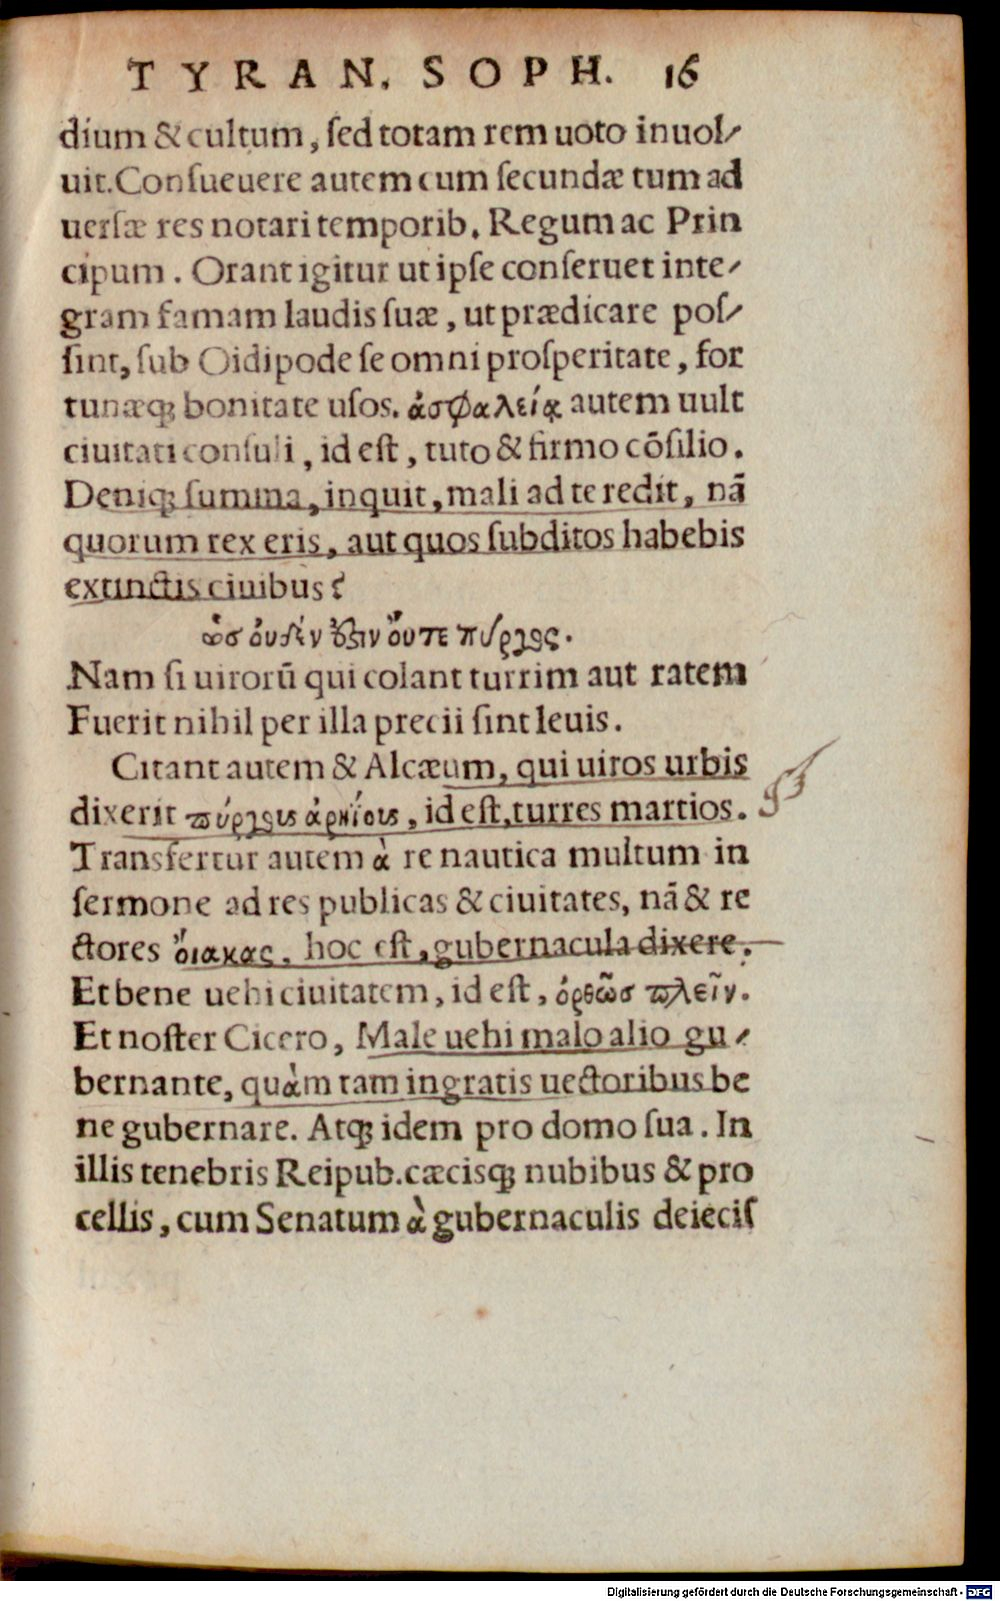 TYRAN. SOPH. 16
dium & cultum, ſed totam rem uoto inuol⸗
uit. Conſueuere autem cum ſecundæ tum ad
uerſæ res notari temporib. Regum ac Prin
cipum. Orant igitur ut ipſe conſeruet inte⸗
gram famam laudis ſuæ, ut prædicare poſ⸗
ſint, ſub Oidipode ſe omni proſperitate, for
tunæq́; bonitate uſos. ἀσφαλείᾳ autem uult
ciuitati conſuli, id eſt, tuto & firmo cõſilio.
Deniq; ſumma, inquit, mali ad te redit, nã
quorum rex eris, aut quos ſubditos habebis
extinctis ciuibus?
ὡσ ὀυδέν ὅξιν ὄυτε πύργος.
Nam ſi uirorũ qui colant turrim aut ratem
Fuerit nihil per illa precii ſint leuis.
Citant autem & Alcæum, qui uiros urbis
dixerit πύργους ἀρηίους, id eſt, turres martios.
Transfertur autem à re nautica multum in
ſermone ad res publicas & ciuitates, nã & re
ctores ὄιακας, hoc eſt, gubernacula dixere.
Et bene uehi ciuitatem, id eſt, ὀρθῶσ πλεῖν.
Et noſter Cicero, Male uehi malo alio gu⸗
bernante, quàm tam ingratis uectoribus be
ne gubernare. Atq; idem pro domo ſua. In
illis tenebris Reipub. cæcisq; nubibus & pro
cellis, cum Senatum à gubernaculis deieciſ
Digitalisierung gefördert durch die Deutsche Forschungsgemeinschaft - DFG